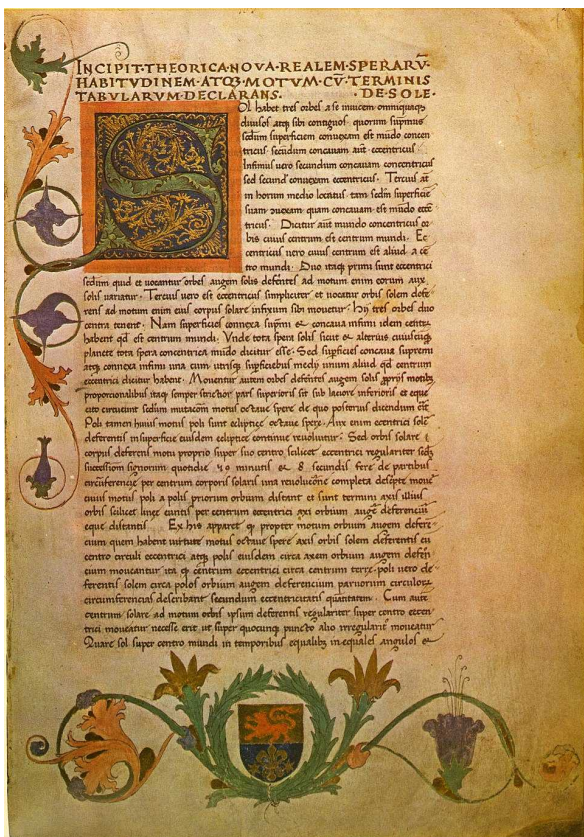 INCIPIT·THEORICA·NOVA·REALEM·SPERARV̄
HABITVDINEM·ATQꝫ·MOTVM·CV̄·TERMINIS
TABVLARVM·DECLARANS. ·DE·SOLE·
SOl habet tres orbes a se inuicem omniquaqꝫ
diuisos atqꝫ sibi contiguos quorum supͥmus
sedm superficiem conuexam est mūdo concen
tricus secūdum concauam aūt eccentricus
Infimus uero secundum concauam concentricus
sed secund' conuexam eccentricus· Tercius aūt
in horum medio locatus tam sedm superficiē
suam ꝯuexam quam concauam est mūdo eccē
tricus· Dicitur aūt mundo concentricus or
bis cuius centrum est centrum mundi· Ec
centricus uero cuius centrum est aliud a cē
tro mundi· Duo itaqꝫ primi sunt eccentrici
sedm quid et uocantur orbes augem solis deferētes ad motum enim eorum aux
solis uariatur· Tercius uero est eccentricus simpliciter et uocatur orbis solem defe
rens ad motum enim eius corpus solare infixum sibi mouetur· Hij tres orbes duo
centra tenent· Nam superficies conuexa supͥmi et concaua infimi idem centrū
habent qd est centrum mundi· Vnde tota spera solis sicut et alterius cuiuscūqꝫ
planete tota spera concentrica mūdo dicitur esse· Sed supficies concaua supremi
atqꝫ connexa infimi una cum utrisqꝫ supficiebus medij unum aliud qd centrum
eccentrici dicitur habent· Mouentur autem orbes deferētes augem solis ꝓprijs motibꝫ
proporcionalibus itaqꝫ semper strictior pars superioris sit sub laciore inferioris et eque
cito circueunt sedm mutacōm motus octaue spere de quo posterius dicendum erit
Poli tamen huius motus poli sunt eclipticē octaue spere· Aux enim eccentrici solē
deferentis in superficie eiusdem eclipticē continue reuoluitur· Sed orbis solare
corpus deferens motu proprio super suo centro scilicet eccentrici regulariter sedm
successiōm signorum quotidie 59 minutis et 8 secundis fere de partibus
circūferenciē per centrum corporis solaris una reuolucōne completa descripte mouet̄
cuius motus poli a polis priorum orbium distant et sunt termini axis illius
orbis scilicet linee euntis per centrum eccentrici axi orbium augē deferenciū
eque distantis Ex his apparet qꝫ propter motum orbium augem defere-
cium quem habent uirtute motus octaue spere axis orbis solem deferentis cū
centro circuli eccentrici atqꝫ polis eiusdem circa axem orbium augem defērē
cium moueantur ita qꝫ centrum eccentrici circa centrum terre· poli uero de-
ferentis solem circa polos orbium augem deferencium paruorum circulorꝫ
circumferencias describant secundum eccentricitatis quātitatem· Cum autē
centrum solare ad motum orbis ipsum deferentis regulariter super centro eccen-
trici moueatur necesse erit ut super quocunqꝫ puncto alio irregulariē moueatur
Quare sol super centro mundi in temporibus equalibꝫ inequales angulos et